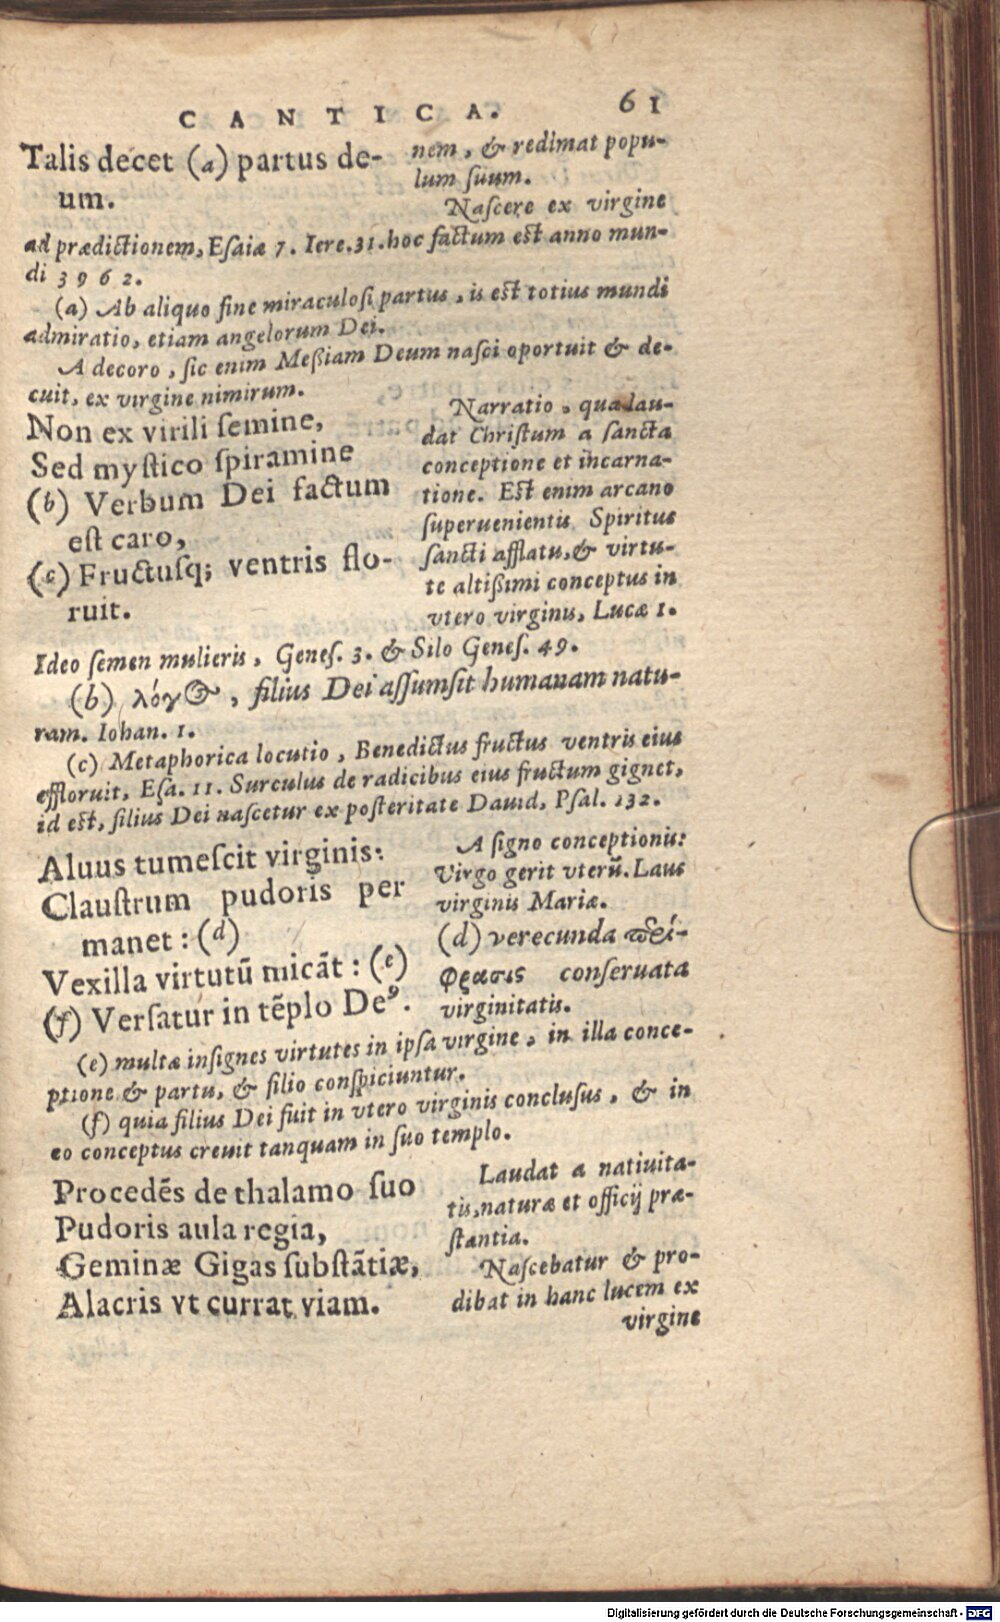 CANTICA. 61
Talis decet (a) partus de-
um.
nem, & redimat popu-
lum suum.
Nascere ex virgine
ad prædictionem, Esaiæ 7. Iere.31.hoc factum est anno mun-
di 3962.
(a) Ab aliquo fine miraculosi partus, is est totius mundi
admiratio, etiam angelorum Dei.
A decoro, sic enim Meßiam Deum nasci oportuit & de-
cuit, ex virgine nimirum.
Non ex virili semine,
Sed mystico spiramine
(b) Verbum Dei factum
est caro,
(c) Fructusq; ventris flo-
ruit.
Narratio, qua lau-
dat Christum a sancta
conceptione et incarna-
tione. Est enim arcano
superuenientis Spiritus
sancti afflatu, & virtu-
te altißimi conceptus in
vtero virginis, Lucæ 1.
Ideo semen mulieris, Genes. 3. & Silo Genes. 49.
(b) λόγος, filius Dei assumsit humanam natu-
ram. Iohan. 1.
(c) Metaphorica locutio, Benedictus fructus ventris eius
effloruit, Esa. 11. Surculus de radicibus eius fructum gignet,
id est, filius Dei nascetur ex posteritate Dauid, Psal. 132.
Aluus tumescit virginis:
Claustrum pudoris per
manet: (d)
Vexilla virtutū micāt: (e)
(f) Versatur in tēplo Deꝰ.
A signo conceptionis:
Virgo gerit vterū. Laus
virginis Mariæ.
(d) verecunda περί-
φρασις conseruata
virginitatis.
(e) multæ insignes virtutes in ipsa virgine, in illa conce-
ptione & partu, & filio conspiciuntur.
(f) quia filius Dei fuit in vtero virginis conclusus, & in
eo conceptus creuit tanquam in suo templo.
Procedēs de thalamo suo
Pudoris aula regia,
Geminæ Gigas substātiæ,
Alacris vt currat viam.
Laudat a natiuita-
tis, naturæ et officij præ-
stantia.
Nascebatur & pro-
dibat in hanc lucem ex
virgine
Digitalisierung gefördert durch die Deutsche Forschungsgemeinschaft - DFG